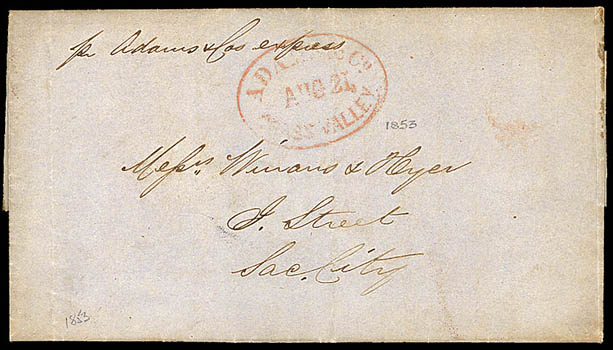 pr Adams & Cos express
ADAMS & Co
AUG 21
GRASS VALLEY
1853
Messrs Winans & Hyer
J. Street
Sac. City
1853